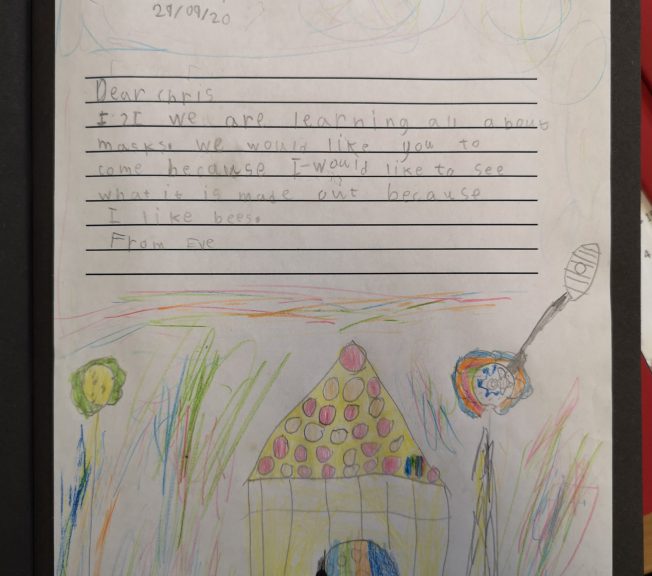 29/09/20
Dear chris
we are learning all about
masks. we would like you to
come because I would like to see
what it is made out because
I like bees.
From Eve